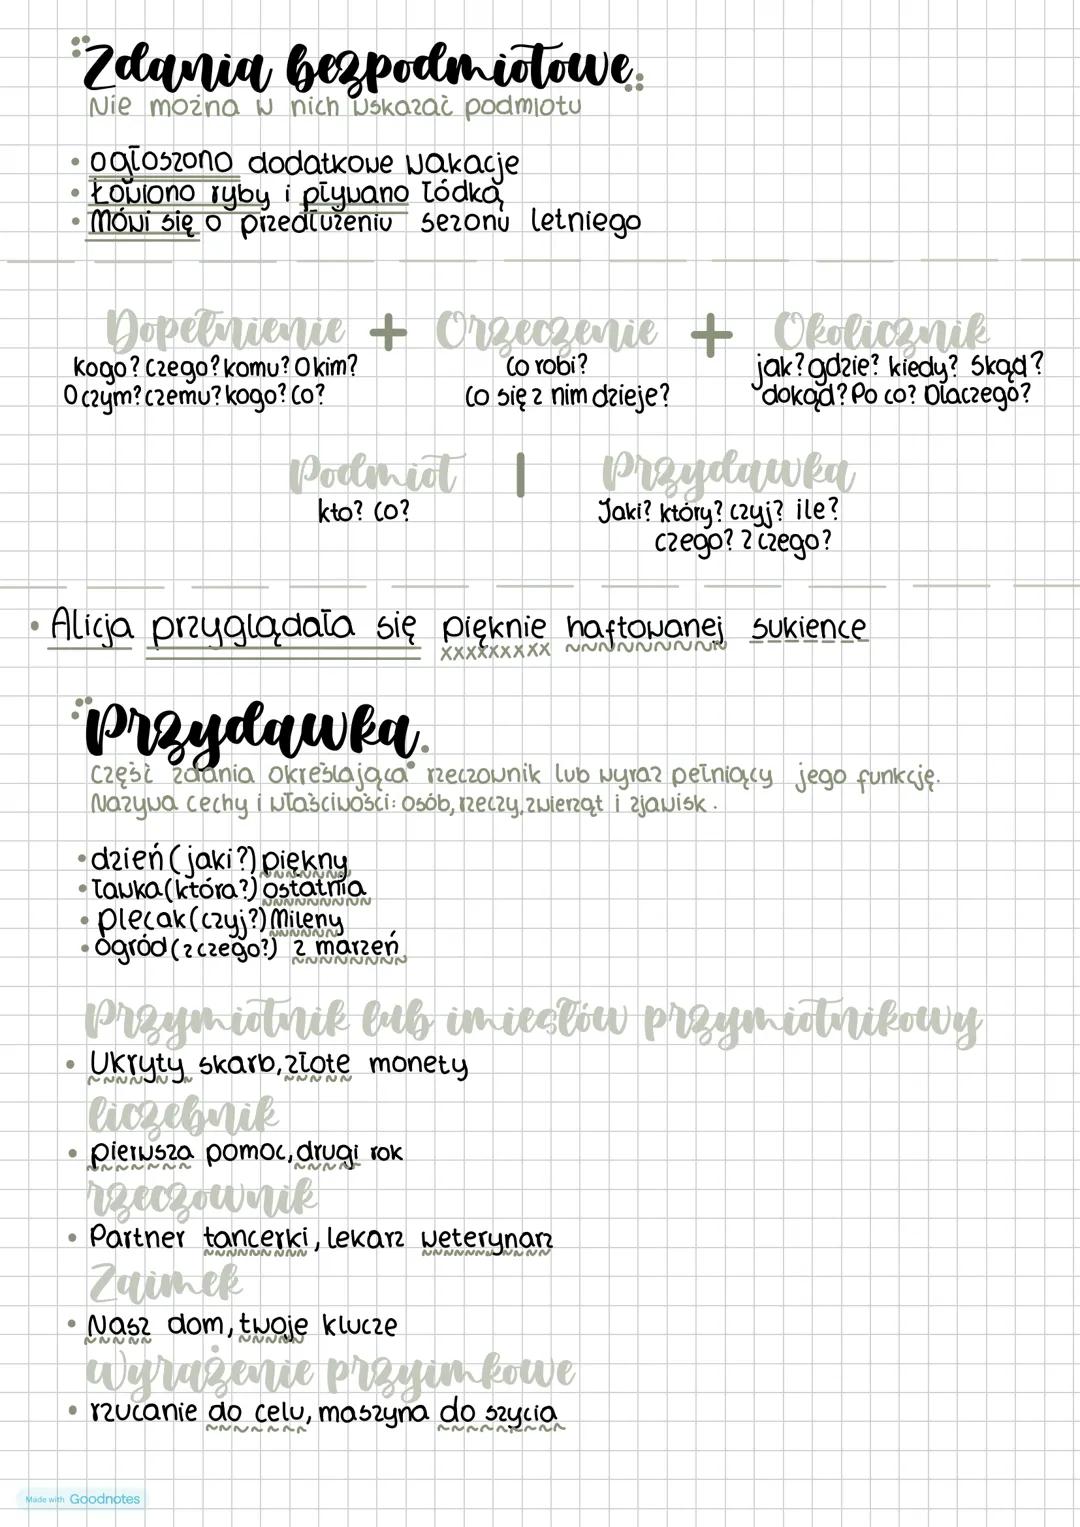 Zdania bezpodmiotowe
Nie można w nich wskazać podmiotu
• ogłoszono dodatkowe wakacje
• Łowiono ryby i pływano łódką
• Mówi się o przedłużeniu sezonu letniego
Dopełnienie + Orzeczenie + Okolicznik
kogo? czego? komu? O kim?
O czym? czemu? kogo? co?
Co robi?
Co się z nim dzieje?
jak? gdzie? kiedy? Skąd?
dokąd? Po co? Dlaczego?
Podmiot | Przydawka
kto? Co?
Jaki? który? czyj? ile?
czego? z czego?
• Alicja przyglądała się pięknie haftowanej sukience
xxxxxxxxx
Przydawka
Część zdania określająca rzeczownik lub wyraz pełniący jego funkcję.
Nazywa cechy i właściwości: osób, rzeczy, zwierząt i zjawisk.
• dzień (jaki?) piękny
• ławka (która?) ostatnia
• plecak (czyj?) Mileny
• Ogród (z czego?) z marzeń
Przymiotnik lub imiesłów przymiotnikowy
• Ukryty skarb, złote monety
liczebnik
• pierwsza pomoc, drugi rok
rzeczownik
• Partner tancerki, lekarz weterynarz
Zaimek
• Nasz dom, twoje klucze
Wyrażenie przyimkowe
• rzucanie do celu, maszyna do szycia
Made with Goodnotes